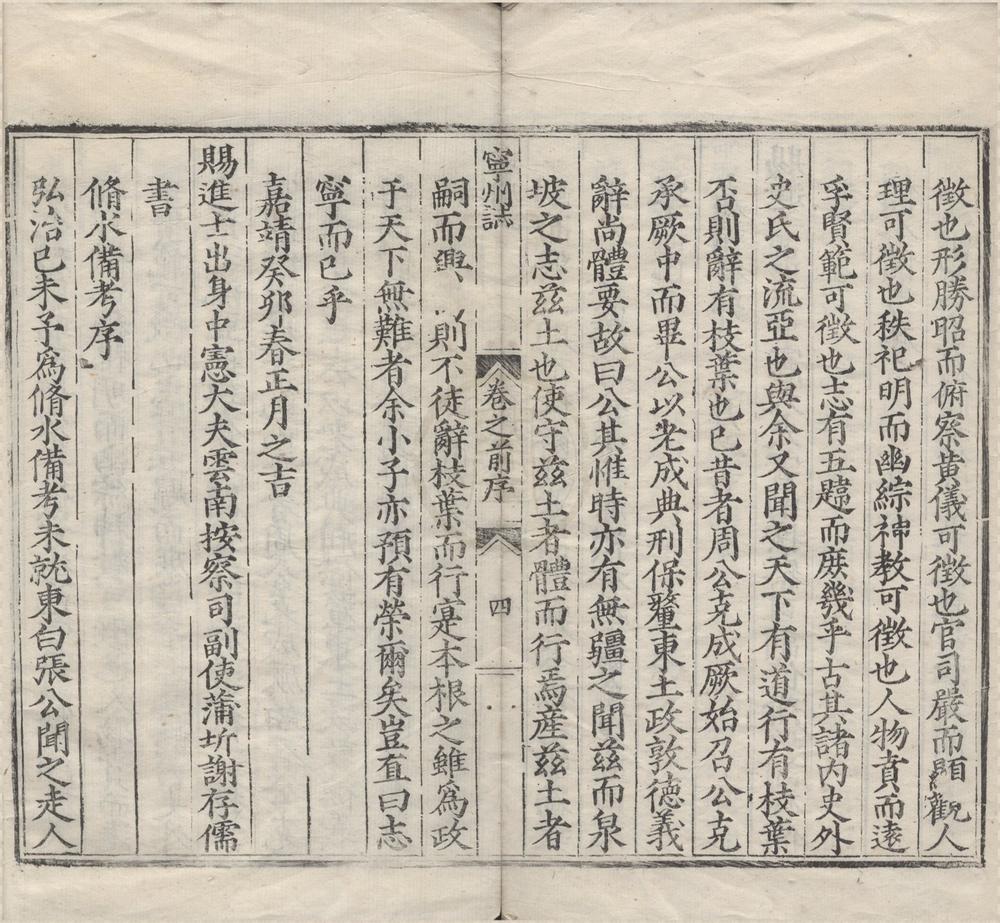 徵也形勝昭而俯察黄儀可徵也官司嚴而顯觀人
理可徵也秩祀明而幽綜神教可徵也人物賁而遠
孚賢範可徵也志有五韙而庶幾乎古其諸内史外
史氏之流亞也與余又聞之天下有道行有枝葉
否則辭有枝葉也已昔者周公克成厥始召公克
承厥中而畢公以老成典刑保釐東土政敦德義
辭尚體要故曰公其惟時亦有無疆之聞兹而泉
坡之志兹土也使守兹土者體而行焉産兹土者
寧州誌 卷之前序 四
嗣而興 則不徒辭枝葉而行寔本根之雖爲政
于天下無難者余小子亦預有榮爾矣豈直曰志
寧而已乎
嘉靖癸卯春正月之吉
賜進士出身中憲大夫雲南按察司副使蒲圻謝存儒
書
脩水備考序
弘治己未予爲脩水備考未就東白張公聞之走人